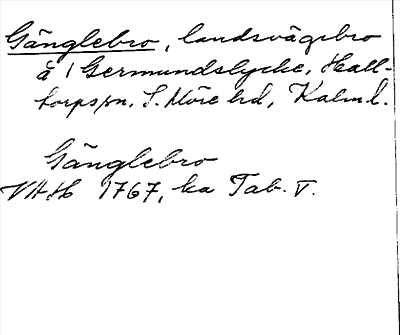 Gänglebro, landsvägsbro
å 1 Germundslycke, Hall-
torps sn, S. Möre hd, Kalm. l.
Gänglebro
VAH 1767, ka Tab. V.